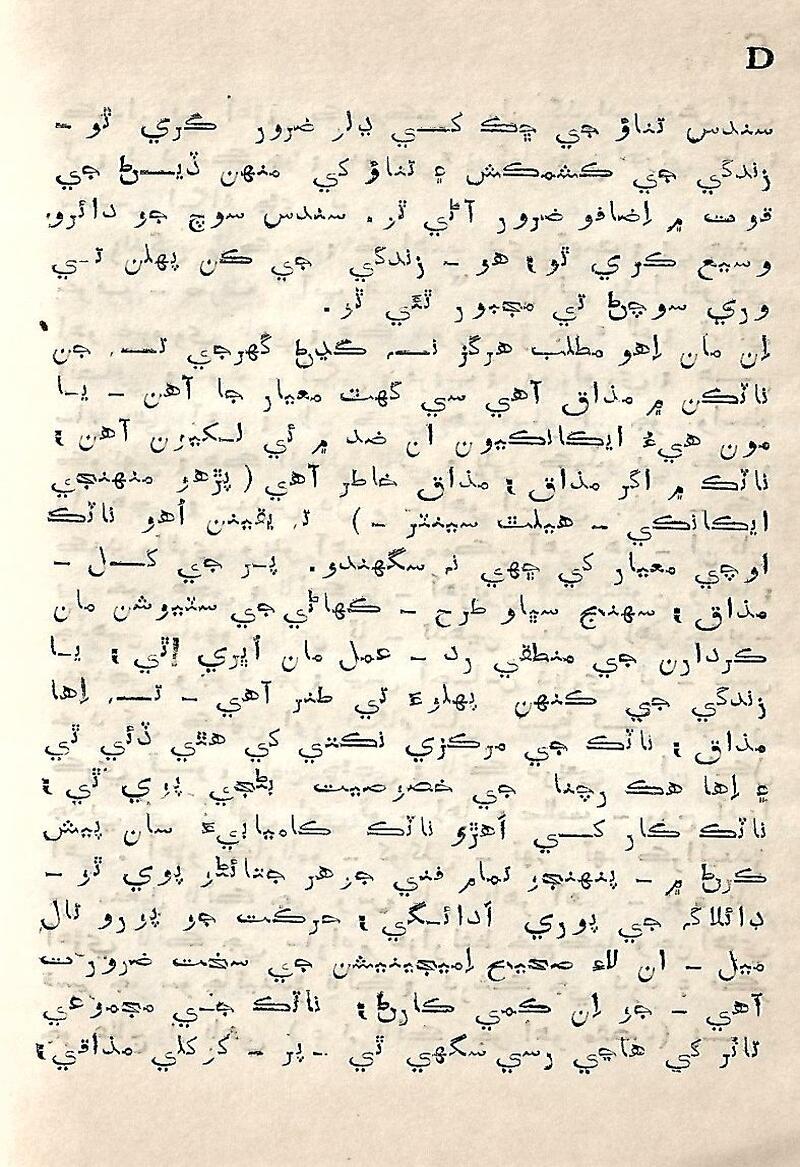 D
سندس تناؤ جي ڇڪ کـــي ڍلو ضرور ڪري ٿو ـ
زندگي جي ڪشمڪش ۽ تناؤ کي منهن ڏيـــڻ جي
قوت ۾ اِضافو ضرور آڻي ٿو. سندس سوچ جو دائرو
وسيع ڪري ٿو ۽ هو ـ زندگي جي ڪن پهلن تـي
وري سوچڻ تي مجبور ٿئي ٿو.
اِن مان اِهو مطلب هرگز نــہ ڪڍڻ گهرجي تــہ جن
ناٽڪن ۾ مذاق آهي سي گهٽ معيار جا آهن ـ يـا
مون هيءُ ايڪانڪيون ان ضد ۾ ئي لـکيون آهن ۽
ناٽڪ ۾ اگر مذاق ۽ مذاق خاطر آهي (پڙهو منهنجي
ايڪانڪي ـ هيلٿ سينٽر ـ) تہ يقينن اُهو ناٽڪ
اوچي معيار کي ڇهي نہ سگهندو. پـر جي کـــل ـ
مذاق ۽ سهنج سڀاو طرح ـ ڪهاڻي جي سٽيوشن مان
ڪردارن جي منطقي رد ـ عمل مان اُڀري اچي ۽ يـا
زندگي جي ڪنهن پهلوءَ تي طنز آهي ـ تــہ اِها
مذاق ۽ ناٽڪ جي مرڪزي نڪتي کي هٿي ڏئي ٿي
۽ اِها هڪ رچنا جي خصوصيت بڻجي پوي ٿي ۽
ناٽڪ ڪار کـــي اَهڙو ناٽڪ ڪاميابيءَ سان پيش
ڪرڻ ۾ ـ پنهنجو تمام فني جوهر جتائڻو پوي ٿو ـ
ڊائلاگہ جي پوري اَدائـگي ۽ حرڪت جو پورو تال
ميل ـ ان لاءِ صحيح اِميجينيشن جي سخت ضرورت
آهي ـ جو اِن ڪمي ڪارڻ ۽ ناٽڪ جـي مجموعي
تاثر کي هاڃي رسي سگهي ٿي ـ پر ـ کوکلي مذاقي ۽